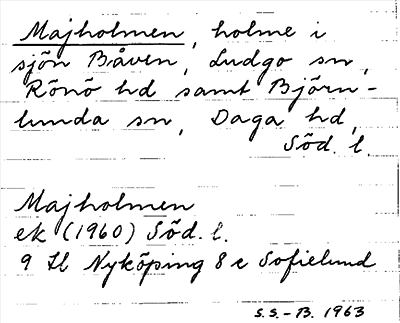 Majholmen, holme i
sjön Båven, Ludgo sn,
Rönö hd samt Björn-
lunda sn, Daga hd,
Söd. l.
Majholmen
ek (1960) Söd. l.
9 Il Nyköping 8 c Sofielund
S.S.-B. 1963